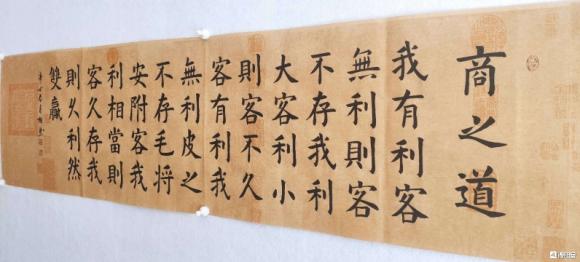 商之道
我有利客
無利則客
不存我利
大客利小
則客不久
客有利我
無利皮之
不存毛將
安附客我
利相當則
客久存我
則久利然
雙贏